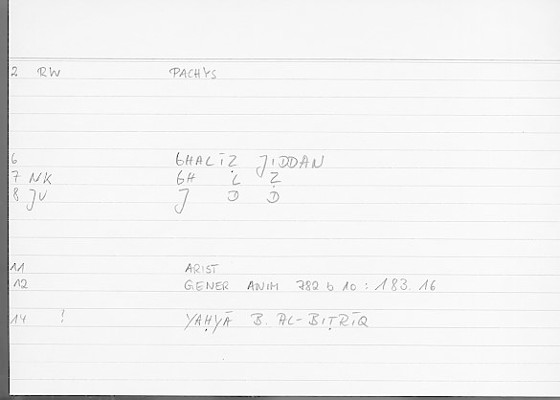 2 RW PACHYS
6 GHALĪẒ JIDDAN
7 NK GH L Ẓ
8 JV J D D
11 ARIST
12 GENER ANIM 782 b 10 : 183.16
14 ! YAḤYĀ B. AL-BIṬRĪQ